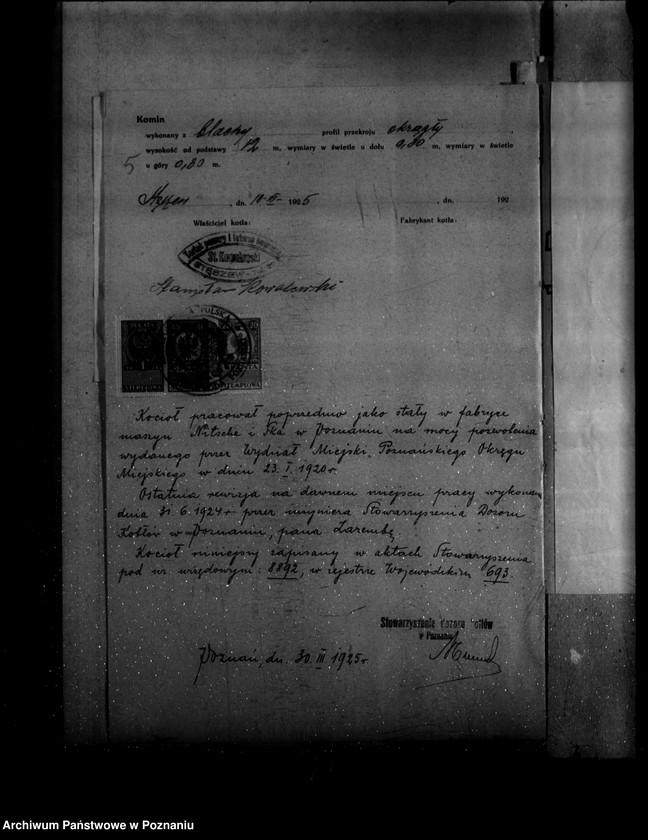 Komin
wykonany z blachy profil przekroju okrągły,
wysokość od podstawy 12 m, wymiary w świetle u dołu 0,80 m, wymiary w świetle
u góry 0,80 m.
5
, dn. 10-III- 1925 , dn. 192
Właściciel kotła: Fabrykant kotła:
St. Kowalewski
Stanisław Kowalewski
POLSKA
Kocioł pracował poprzednio jako stały w fabryce
maszyn Nitsche i Ska w Poznaniu na mocy pozwolenia
wydanego przez Wydział Miejski, Poznańskiego Okręgu
Miejskiego w dniu 23. I. 1920 r.
Ostatnia rewizja na dawnem miejscu pracy wykonana
dnia 31.6.1924 r przez inżyniera Stowarzyszenia Dozoru
Kotłów w Poznaniu, pana Zarembę
Kocioł niniejszy zapisany w aktach Stowarzyszenia
pod nr. urzędowym: 8892, w rejestrze Wojewódzkim 693.
Stowarzyszenie Dozoru Kotłów
w Poznaniu
Poznań, dn. 30. III 1925 r
Archiwum Państwowe w Poznaniu